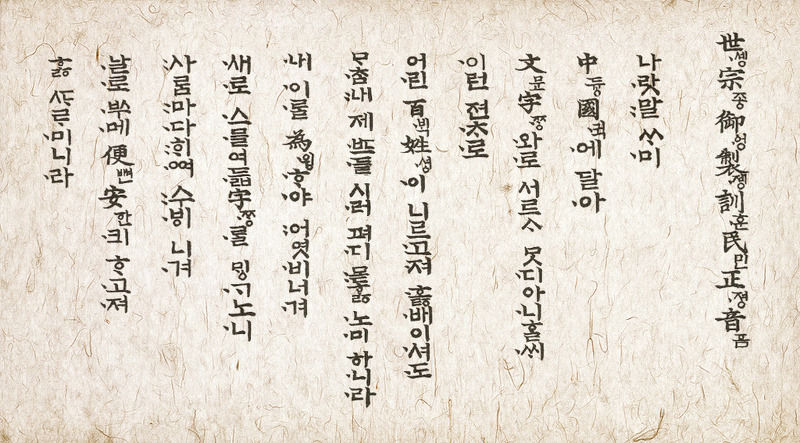 世솅宗종御ᅌᅥᆼ製졩訓훈民민正졍音ᅙᅳᆷ
나랏말 ᄊᆞ미
中듕國귁에 달아
文문字ᄍᆞᆼ와로 서르 ᄉᆞᄆᆞᆺ디아니ᄒᆞᆯᄊᆡ
이런 젼ᄎᆞ로
어린 百ᄇᆡᆨ姓셩이 니르고져 호ᇙ배이셔도
ᄆᆞᄎᆞᆷ내 제 ᄠᅳ들 시러 펴디 몯ᄒᆞᇙ 노미 하니라
내 이ᄅᆞᆯ 為윙ᄒᆞ야 어엿비너겨
새로 스믈여듧字ᄍᆞᆼᄅᆞᆯ ᄆᆡᇰᄀᆞ노니
사ᄅᆞᆷ마다ᄒᆡᅇᅧ 수ᄫᅵ 니겨
날로 ᄡᅮ메 便뼌安ᅙᅡᆫ킈 ᄒᆞ고져
ᄒᆞᇙ ᄯᆞᄅᆞ미니라